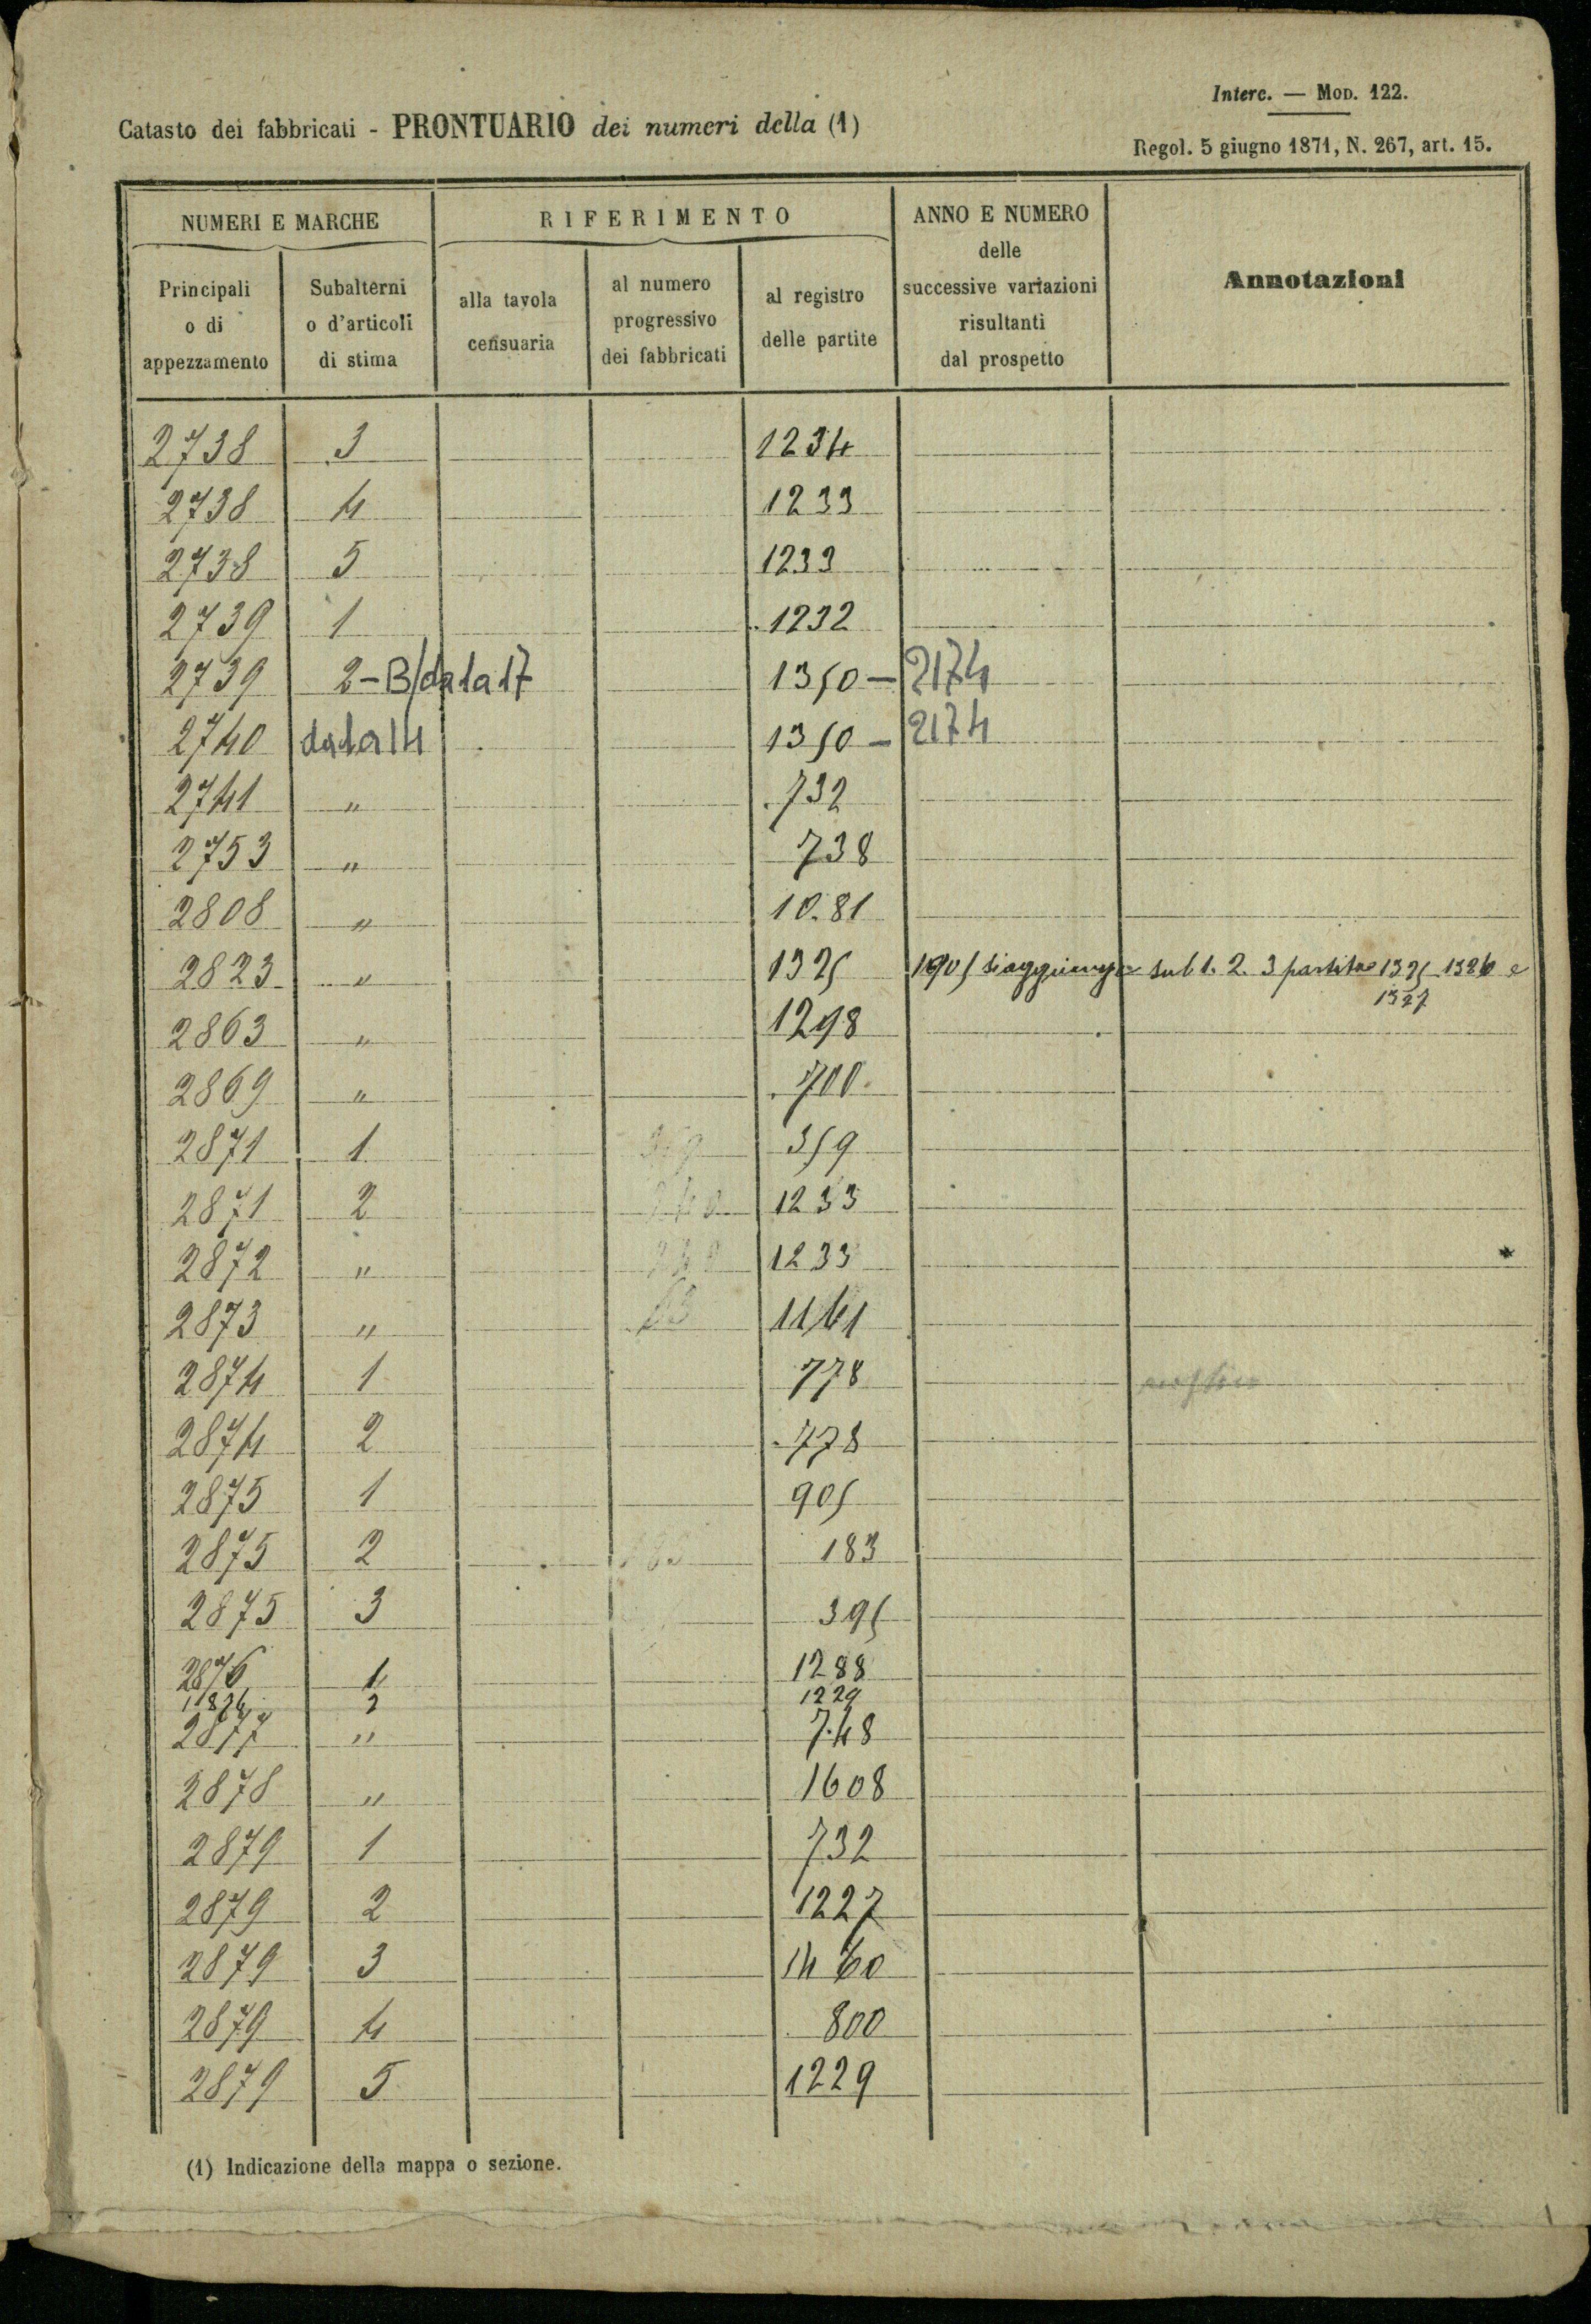 Interc. — Mod. 122.
Catasto dei fabbricati - PRONTUARIO dei numeri della (1)
Regol. 5 giugno 1871, N. 267, art. 15.
NUMERI E MARCHE
RIFERIMENTO
ANNO E NUMERO
delle
successive variazioni
risultanti
dal prospetto
Annotazioni
Principali
o di
appezzamento
Subalterni
o d'articoli
di stima
alla tavola
censuaria
al numero
progressivo
dei fabbricati
al registro
delle partite
2738 3 1234
2738 4 1233
2738 5 1233
2739 1 1232
2739 2-B/da 1 a 17 1350 - 2174
2740 da 1 a 14 1350 - 2174
2741 " 732
2753 " 738
2808 " 1081
2823 " 1325 1905 si aggiunge sub 1. 2. 3 partite 1325 1326 e
1327
2863 " 1298
2869 " 700
2871 1 359 359
2871 2 240 1233
2872 " 1233
2873 " 63 1161
2874 1 778
2874 2 778
2875 1 905
2875 2 183
2875 3 395
2876 1 1288
2 1229
2877 " 748
2878 " 1608
2879 1 732
2879 2 1227
2879 3 1460
2879 4 800
2879 5 1229
(1) Indicazione della mappa o sezione.